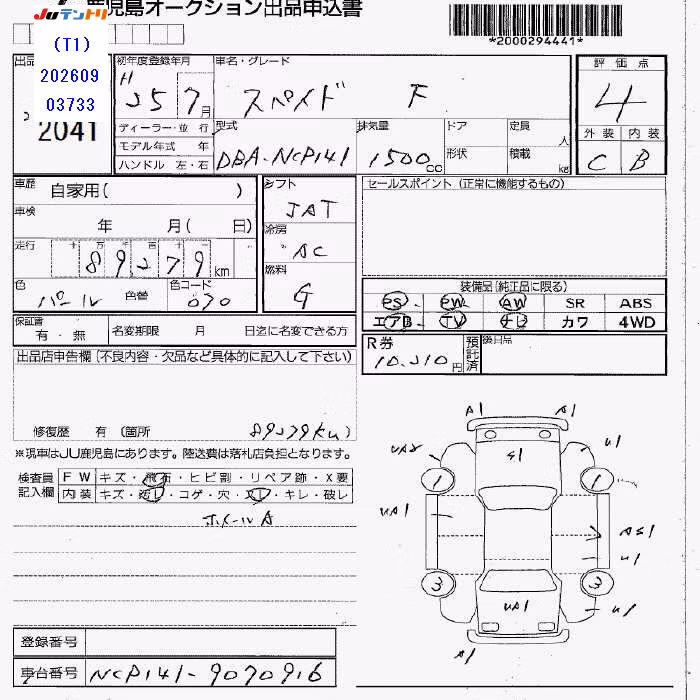 鹿児島オークション出品申込書
Juテントリ
*2000294441*
(T1)
202609
03733
2041
出品
初年度登録年月
H 25 7月
車名・グレード
スペイド F
評価点
4
外装 内装
C B
ディーラー・並行
モデル年式 年
ハンドル 左・右
型式
DBA-NCP141
排気量
1500cc
ドア
形状
定員 人
積載 kg
車歴 自家用( )
車検 年 月( 日)
走行 十 万 千 百 十
89279km
色 パール 色替
色コード 070
シフト
IAT
冷房
AC
燃料
G
セールスポイント (正常に機能するもの)
装備品(純正品に限る)
PS PW AW SR ABS
エアB TV ナビ カワ 4WD
保証書 有・無 名変期限 月 日迄に名変できる方
R券 10.210円 預託済 後日品
出品店申告欄(不良内容・欠品など具体的に記入して下さい)
修復歴 有 (箇所 89279km)
※現車はJU鹿児島にあります。陸送費は落札店負担となります。
検査員記入欄
FW キズ・飛石・ヒビ割・リペア跡・X要
内装 キズ・汚レ・コゲ・穴・スレ・キレ・破レ
ホイールA
A1 A1
UA2 G1 U1
1 1
UA1 AS1
U1
3 3
UA1 U1
A1
登録番号
車台番号 NCP141-9070916